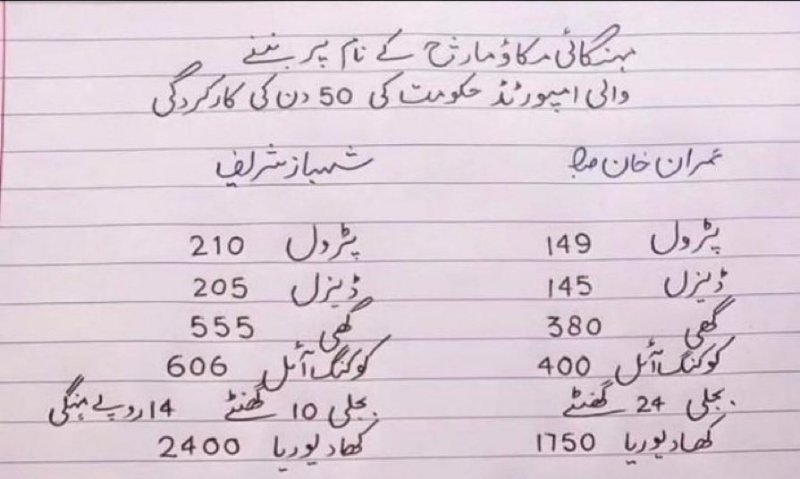 مہنگائی مکاؤ مارچ کے نام پر بننے
والی امپورٹڈ حکومت کی 50 دن کی کارکردگی
عمران خان صاحب شہباز شریف
پٹرول 149 پٹرول 210
ڈیزل 145 ڈیزل 205
گھی 380 گھی 555
کوکنگ آئل 400 کوکنگ آئل 606
بجلی 24 گھنٹے بجلی 10 گھنٹے 14 روپے مہنگی
کھاد یوریا 1750 کھاد یوریا 2400